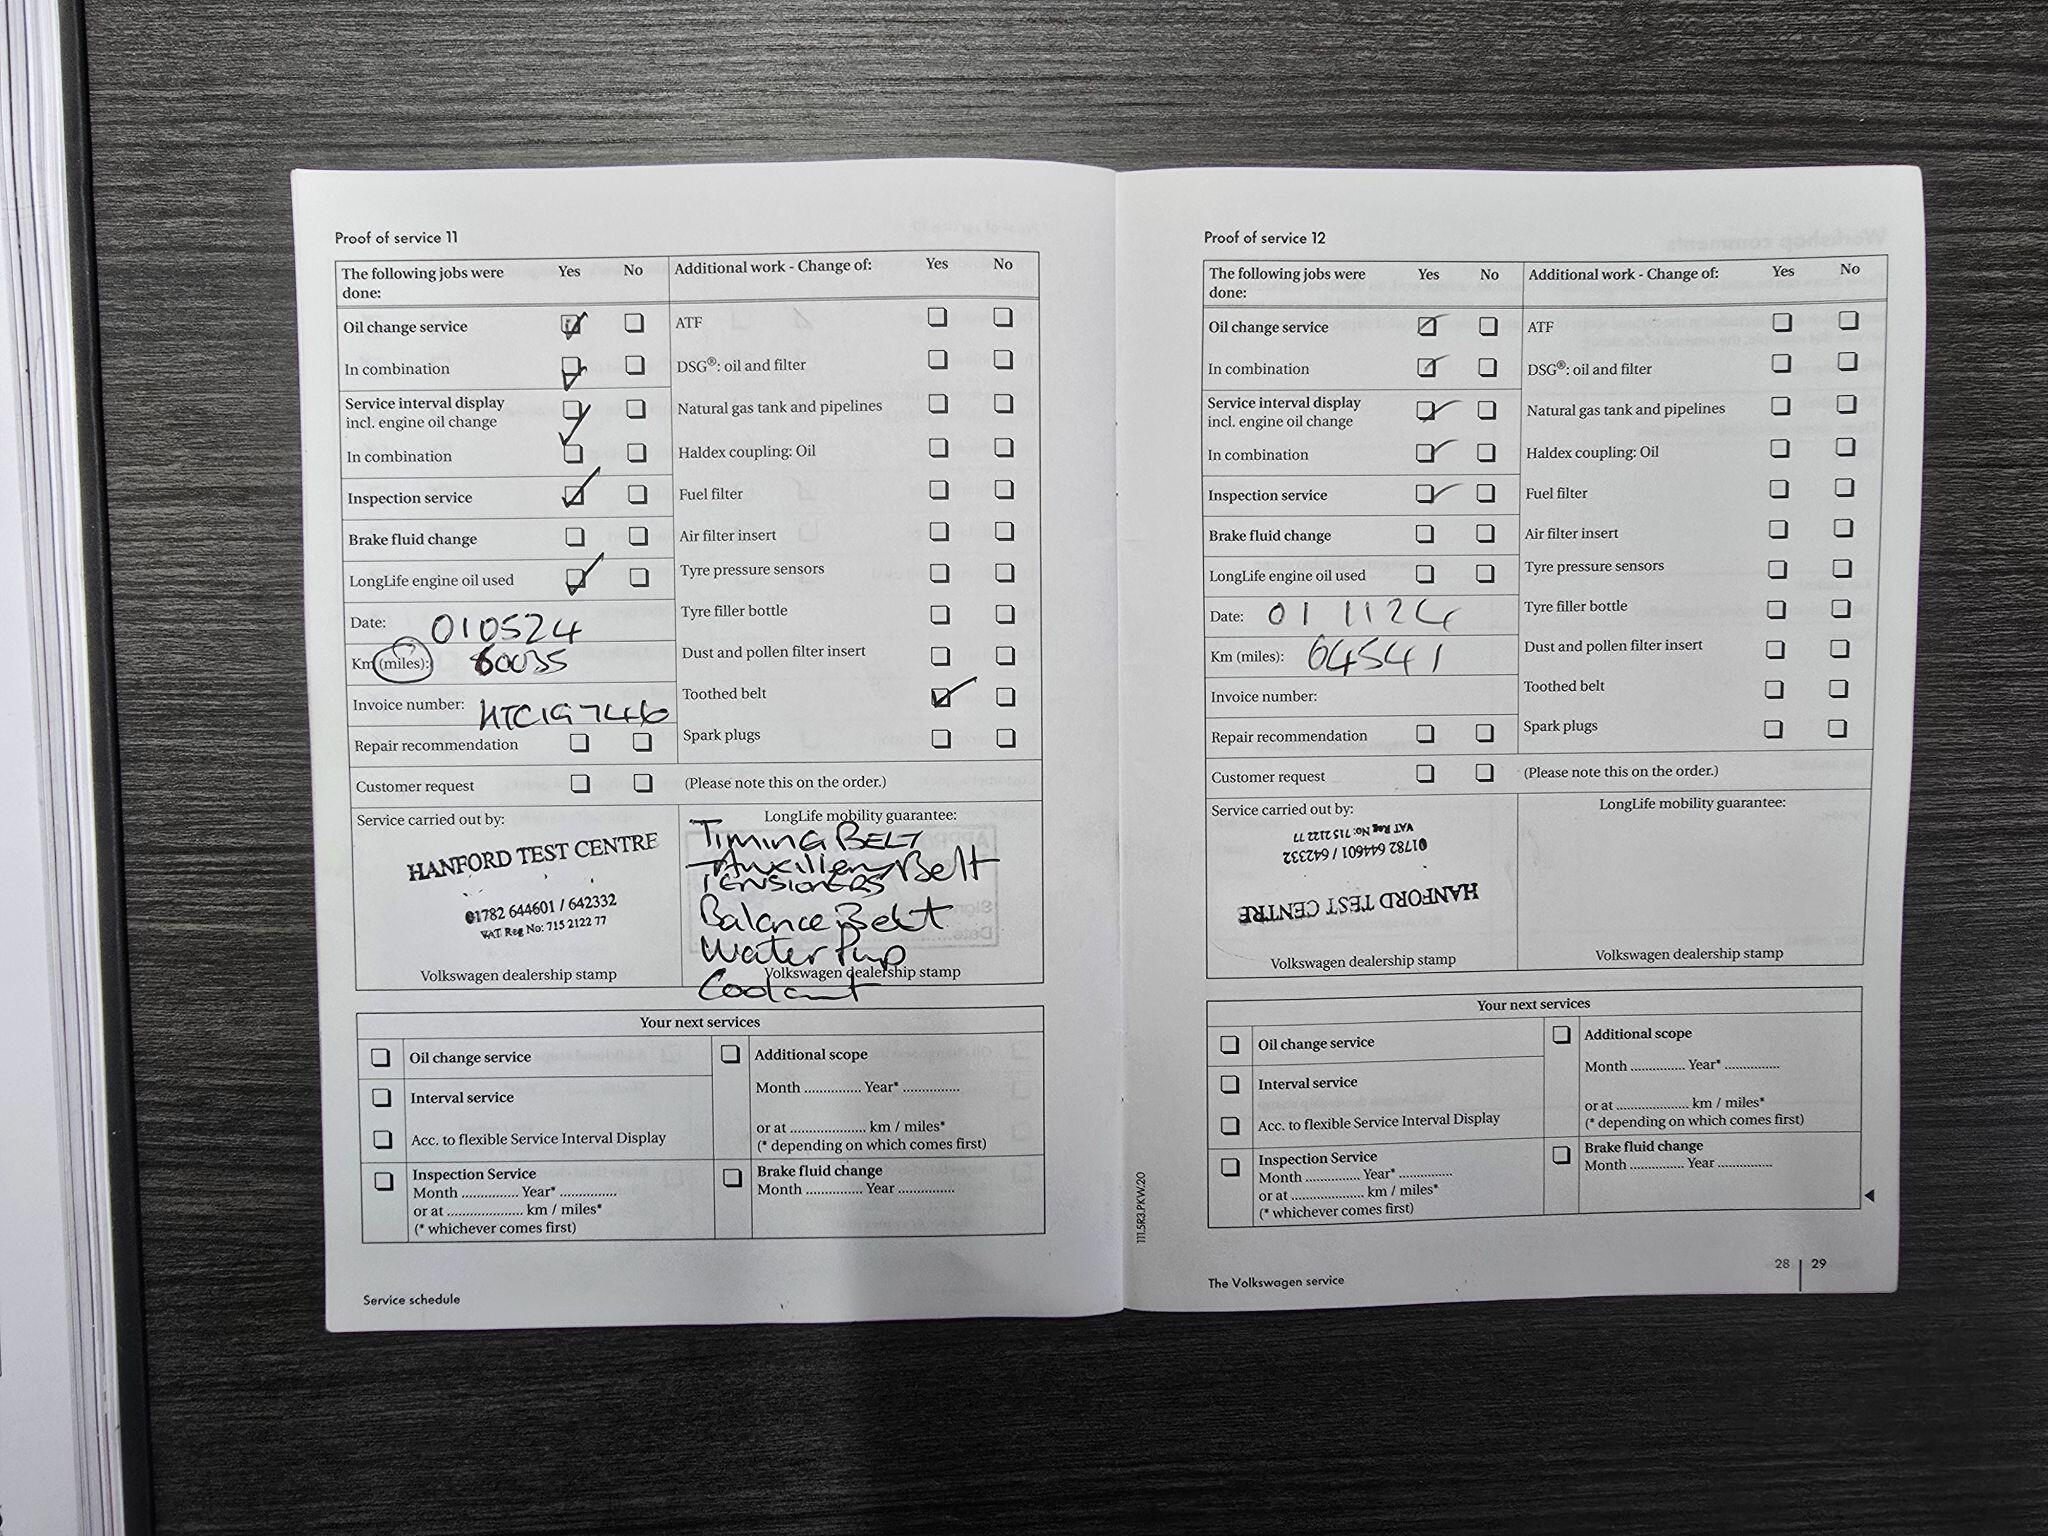 Proof of service 11
The following jobs were done: Yes No
Oil change service
In combination
Service interval display
incl. engine oil change
In combination
Inspection service
Brake fluid change
LongLife engine oil used
Date: 010524
Km (miles): 60035
Invoice number: HTC197446
Repair recommendation
Customer request
Additional work - Change of: Yes No
ATF
DSG®: oil and filter
Natural gas tank and pipelines
Haldex coupling: Oil
Fuel filter
Air filter insert
Tyre pressure sensors
Tyre filler bottle
Dust and pollen filter insert
Toothed belt
Spark plugs
(Please note this on the order.)
Service carried out by:
HANFORD TEST CENTRE
01782 644601 / 642332
VAT Reg No: 715 2122 77
Volkswagen dealership stamp
LongLife mobility guarantee:
Timing BELT
Belt
TENSIONERS
Balance Belt
Water Pump
Volkswagen dealership stamp
Coolant
Your next services
Oil change service
Interval service
Acc. to flexible Service Interval Display
Inspection Service
Month ............... Year* ...............
or at .................... km / miles*
(* whichever comes first)
Additional scope
Month ............... Year* ...............
or at .................... km / miles*
(* depending on which comes first)
Brake fluid change
Month ............... Year ...............
Service schedule
Proof of service 12
The following jobs were done: Yes No
Oil change service
In combination
Service interval display
incl. engine oil change
In combination
Inspection service
Brake fluid change
LongLife engine oil used
Date: 01 1124
Km (miles): 64541
Invoice number:
Repair recommendation
Customer request
Additional work - Change of: Yes No
ATF
DSG®: oil and filter
Natural gas tank and pipelines
Haldex coupling: Oil
Fuel filter
Air filter insert
Tyre pressure sensors
Tyre filler bottle
Dust and pollen filter insert
Toothed belt
Spark plugs
(Please note this on the order.)
Service carried out by:
HANFORD TEST CENTRE
01782 644601 / 642332
VAT Reg No: 715 2122 77
Volkswagen dealership stamp
LongLife mobility guarantee:
Volkswagen dealership stamp
Your next services
Oil change service
Interval service
Acc. to flexible Service Interval Display
Inspection Service
Month ............... Year* ...............
or at .................... km / miles*
(* whichever comes first)
Additional scope
Month ............... Year* ...............
or at .................... km / miles*
(* depending on which comes first)
Brake fluid change
Month ............... Year ...............
111.5R3.PKW.20
The Volkswagen service
28 | 29